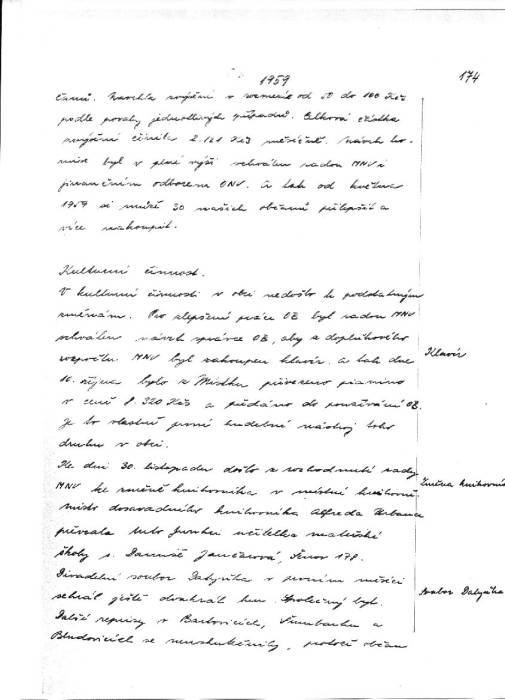 1959
174
čanů. Navrhla zvýšení v rozmezí od 50 do 100 Kčs
podle povahy jednotlivých případů. Celková částka
zvýšení činila 2.121 Kčs měsíčně. Návrh ko-
mise byl v plné výši schválen radou MNV i
finančním odborem ONV. A tak od května
1959 si může 30 našich občanů přilepšit a
více nakoupit.
Kulturní činnost.
V kulturní činnosti v obci nedošlo k podstatným
změnám. Pro zlepšení práce OB byl radou MNV
schválen návrh správce OB, aby z doplňkového
rozpočtu MNV byl zakoupen klavír. A tak dne
Klavír
16. října bylo z Místku přivezeno pianino
v ceně 8.320 Kčs a předáno do používání OB.
Je to vlastně první hudební nástroj toho
druhu v obci.
Ke dni 30. listopadu došlo z rozhodnutí rady
MNV ke změně knihovníka v místní knihovně.
Změna knihovníka
Místo dosavadního knihovníka Alfreda Urbance
převzala tuto funkci učitelka mateřské
školy s. Danuše Jančarová, Šenov 178.
Divadelní soubor Datyňka v prvním měsíci
Soubor Datyňka
sehrál ještě dvakrát hru Společný byt.
Další reprisy v Bartovicích, Šumbarku a
Bludovicích se neuskutečnily, protože občan